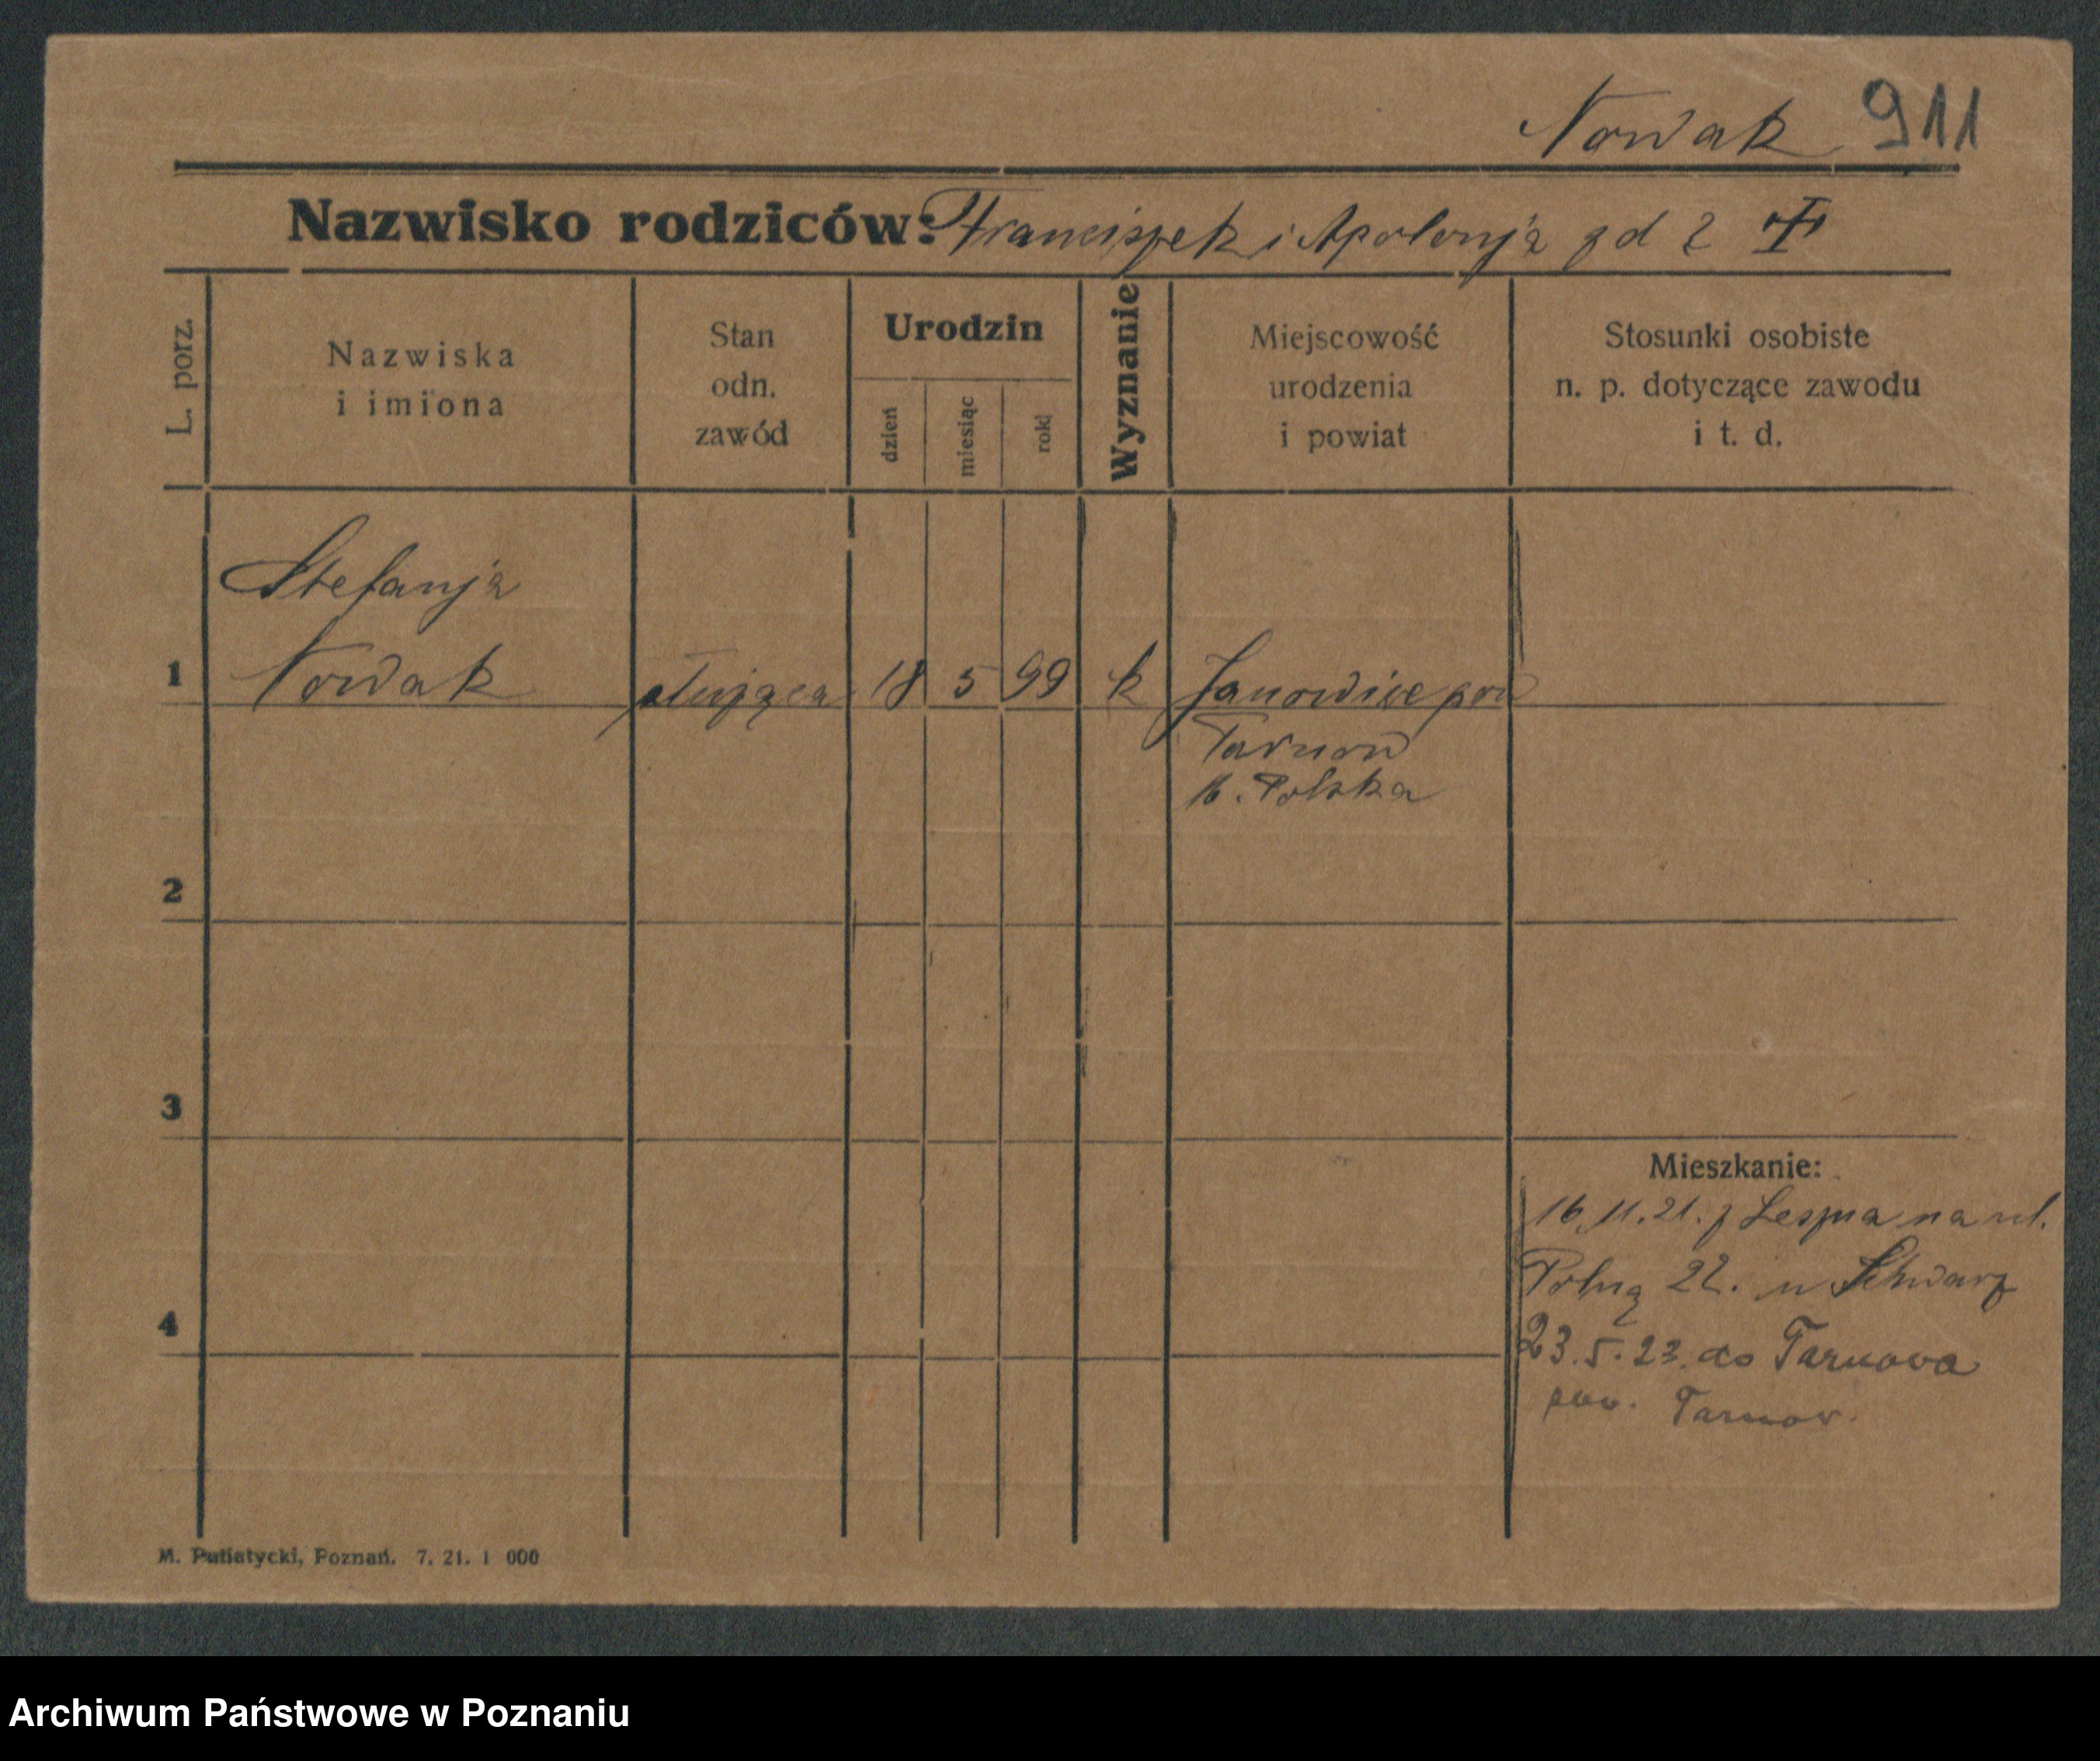 Nowak 911
Nazwisko rodziców: Franciszek i Apolonja zd ?
L. porz.
Nazwiska
i imiona
Stan
odn.
zawód
Urodzin
dzień
miesiąc
rok
Wyznanie
Miejscowość
urodzenia
i powiat
Stosunki osobiste
n. p. dotyczące zawodu
i t. d.
Stefanja
1 Nowak służąca 18 5 99 k Janowice pow
Tarnow
M. Polska
2
3
Mieszkanie:
16.11.21. z Leszna na ul.
Polną 22. u Schwarz
4
23.5.23. do Tarnowa
pow. Tarnow.
M. Putiatycki, Poznań. 7. 21. 1 000
Archiwum Państwowe w Poznaniu